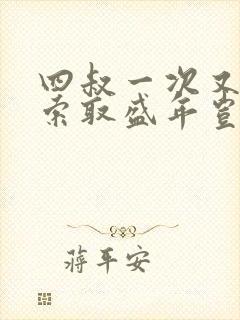 四叔一次又
索取盛年岂
蒋平安